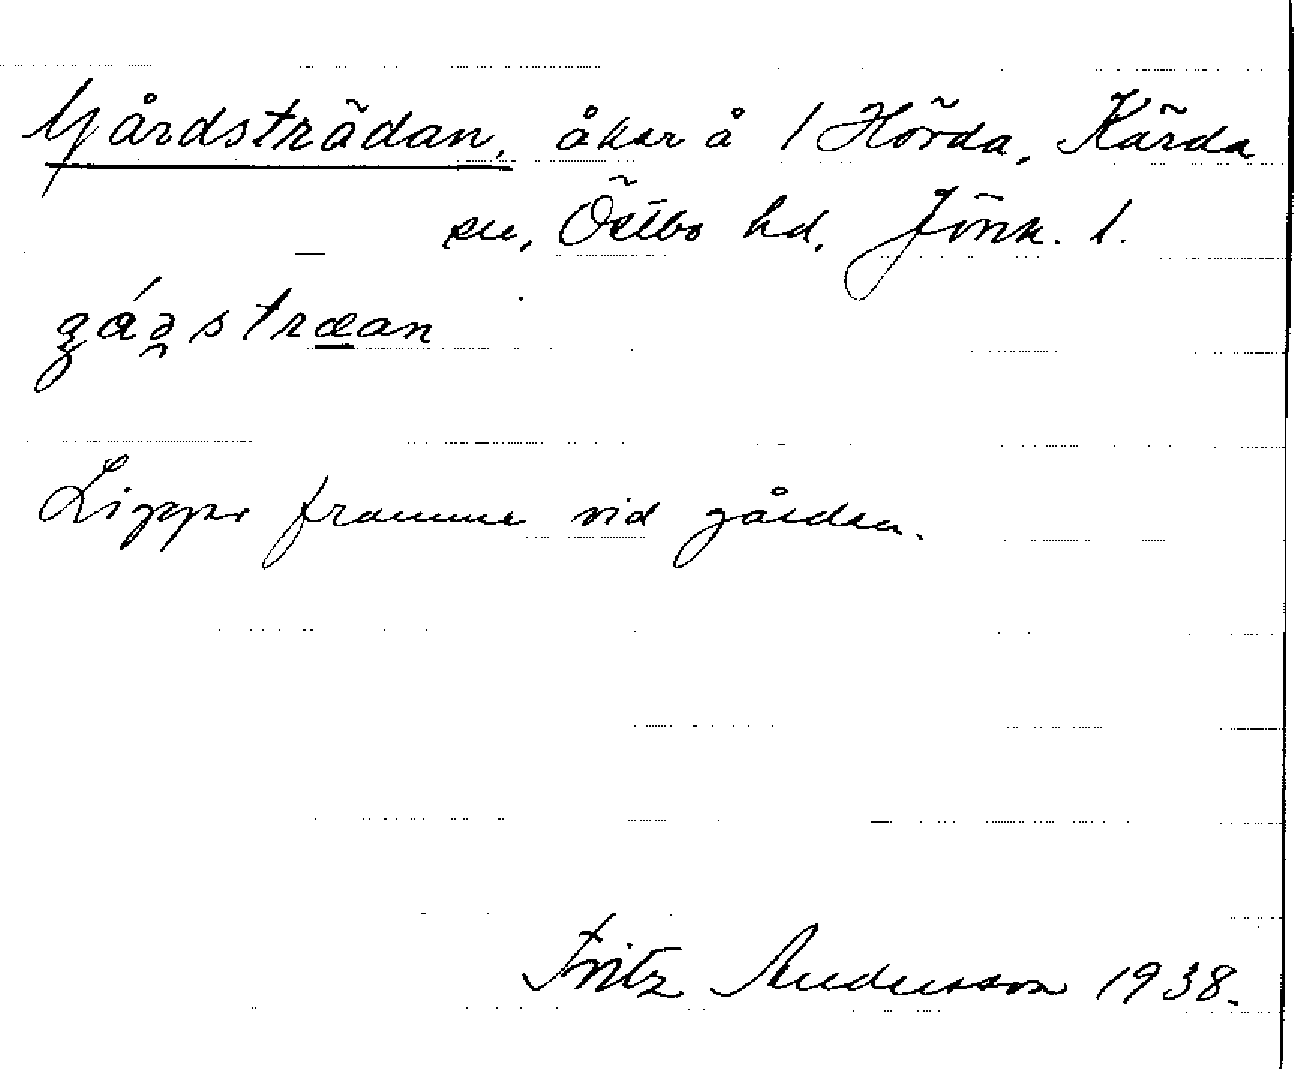 Gårdsträdan, åker å 1 Hörda, Kärda
sn, Östbo hd, Jönk. l.
gáə̯stræan
Ligger framme vid gården.
Fritz Andersson 1938.